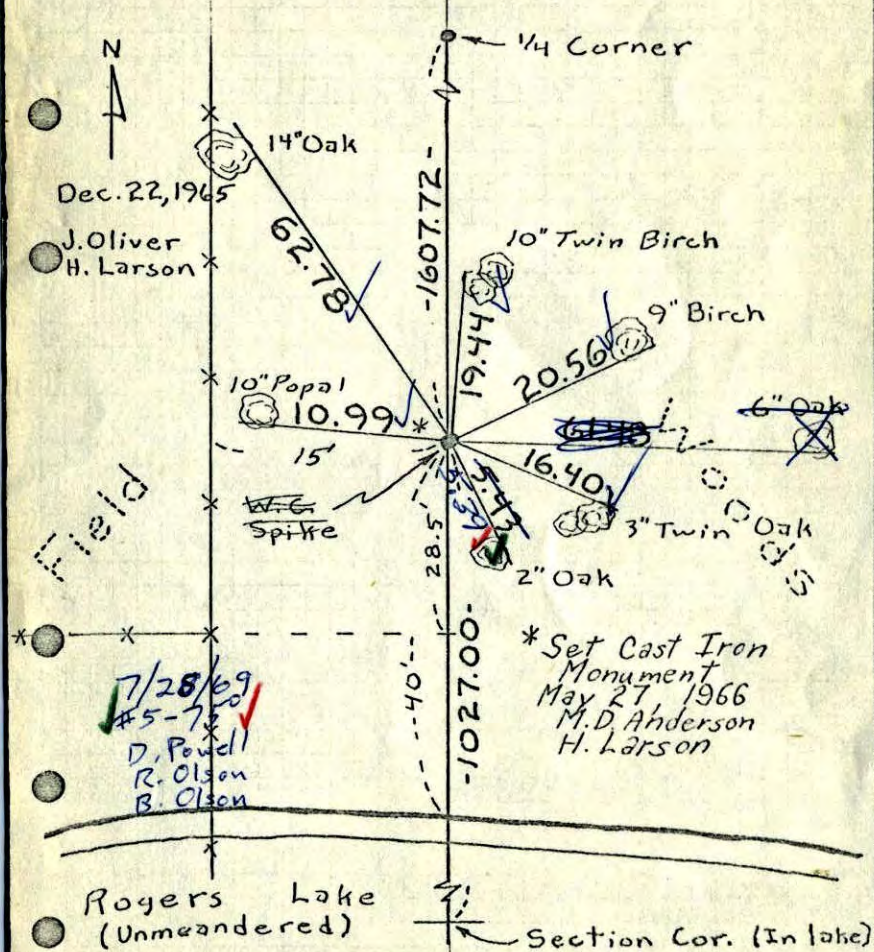 1/4 Corner
N
14" Oak
Dec. 22, 1965
J. Oliver
H. Larson
62.78
-1607.72-
10" Twin Birch
19.44
9" Birch
20.56
10" Popal
10.99
*
6" Oak
15'
16.40
5.43
W.C.
Spike
3" Twin Oak
Woods
Field
28.5'
2" Oak
* Set Cast Iron
Monument
May 27, 1966
M.D. Anderson
H. Larson
7/28/69
D. Powell
R. Olson
B. Olson
--40'--
-1027.00-
Rogers Lake
(Unmeandered)
Section Cor. (In lake)